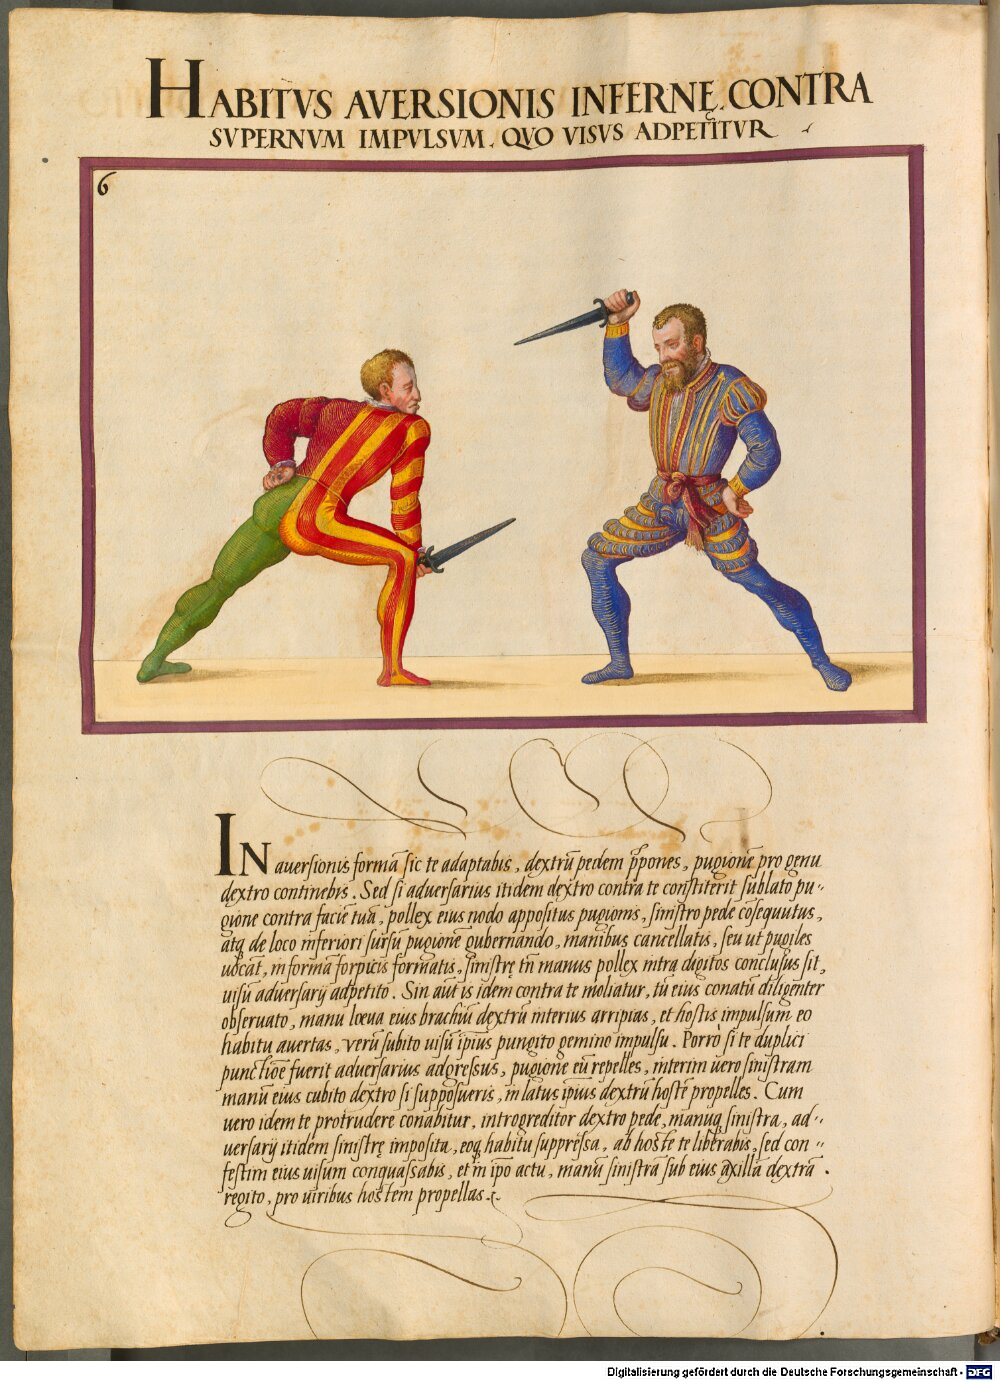 HABITVS AVERSIONIS INFERNĘ, CONTRA
SVPERNVM IMPVLSVM, QVO VISVS ADPETITVR
6
IN auersionis formā sic te adaptabis, dextrū pedem p̄pones, pugionē pro genu
dextro continebis. Sed si aduersarius itidem dextro contra te constiterit sublato pu-
gione contra faciē tuā, pollex eius nodo appositus pugionis, sinistro pede cōsequutus,
atq de loco inferiori sursū pugionē gubernando, manibus cancellatis, seu ut pugiles
uocāt, in formā forpicis formatis, sinistrę tn̄ manus pollex intra digitos conclusus sit,
uisū aduersarij adpetito. Sin aūt is idem contra te moliatur, tū eius conatū diligenter
obseruato, manu loeua eius brachiū dextrū interius arripias, et hostis impulsum eo
habitu auertas, uerū subito uisū ip̄ius pungito gemino impulsu. Porrò si te duplici
punctiōe fuerit aduersarius adgressus, pugionē eū repelles, interim uero sinistram
manū eius cubito dextro si supposueris, in latus ip̄ius dextrū hostē propelles. Cum
uero idem te protrudere conabitur, introgreditor dextro pede, manuq sinistra, ad-
uersarij itidem sinistrę imposita, eoq habitu suppressa, ab hoste te liberabis, sed con-
festim eius uisum conquassabis, et in ip̄o actu, manū sinistra sub eius axillā dextrā
regito, pro uiribus hostem propellas.
Digitalisierung gefördert durch die Deutsche Forschungsgemeinschaft - DFG